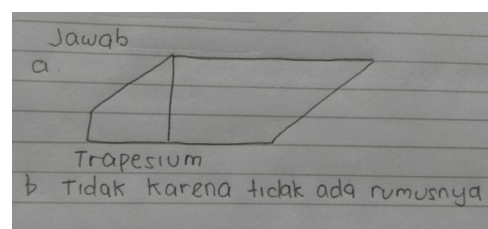 Jawab
a.
Trapesium
b Tidak karena tidak ada rumusnya